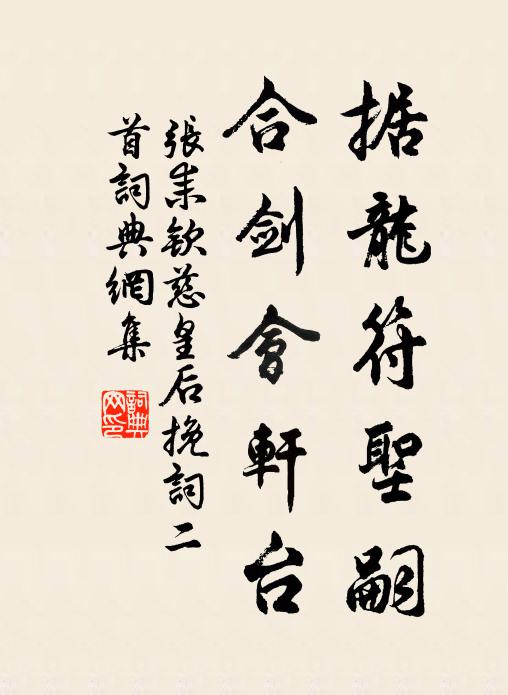 据龍符聖嗣
合劍會軒台
張耒欽慈皇后挽詞二
首詞典網集
詞典
网印